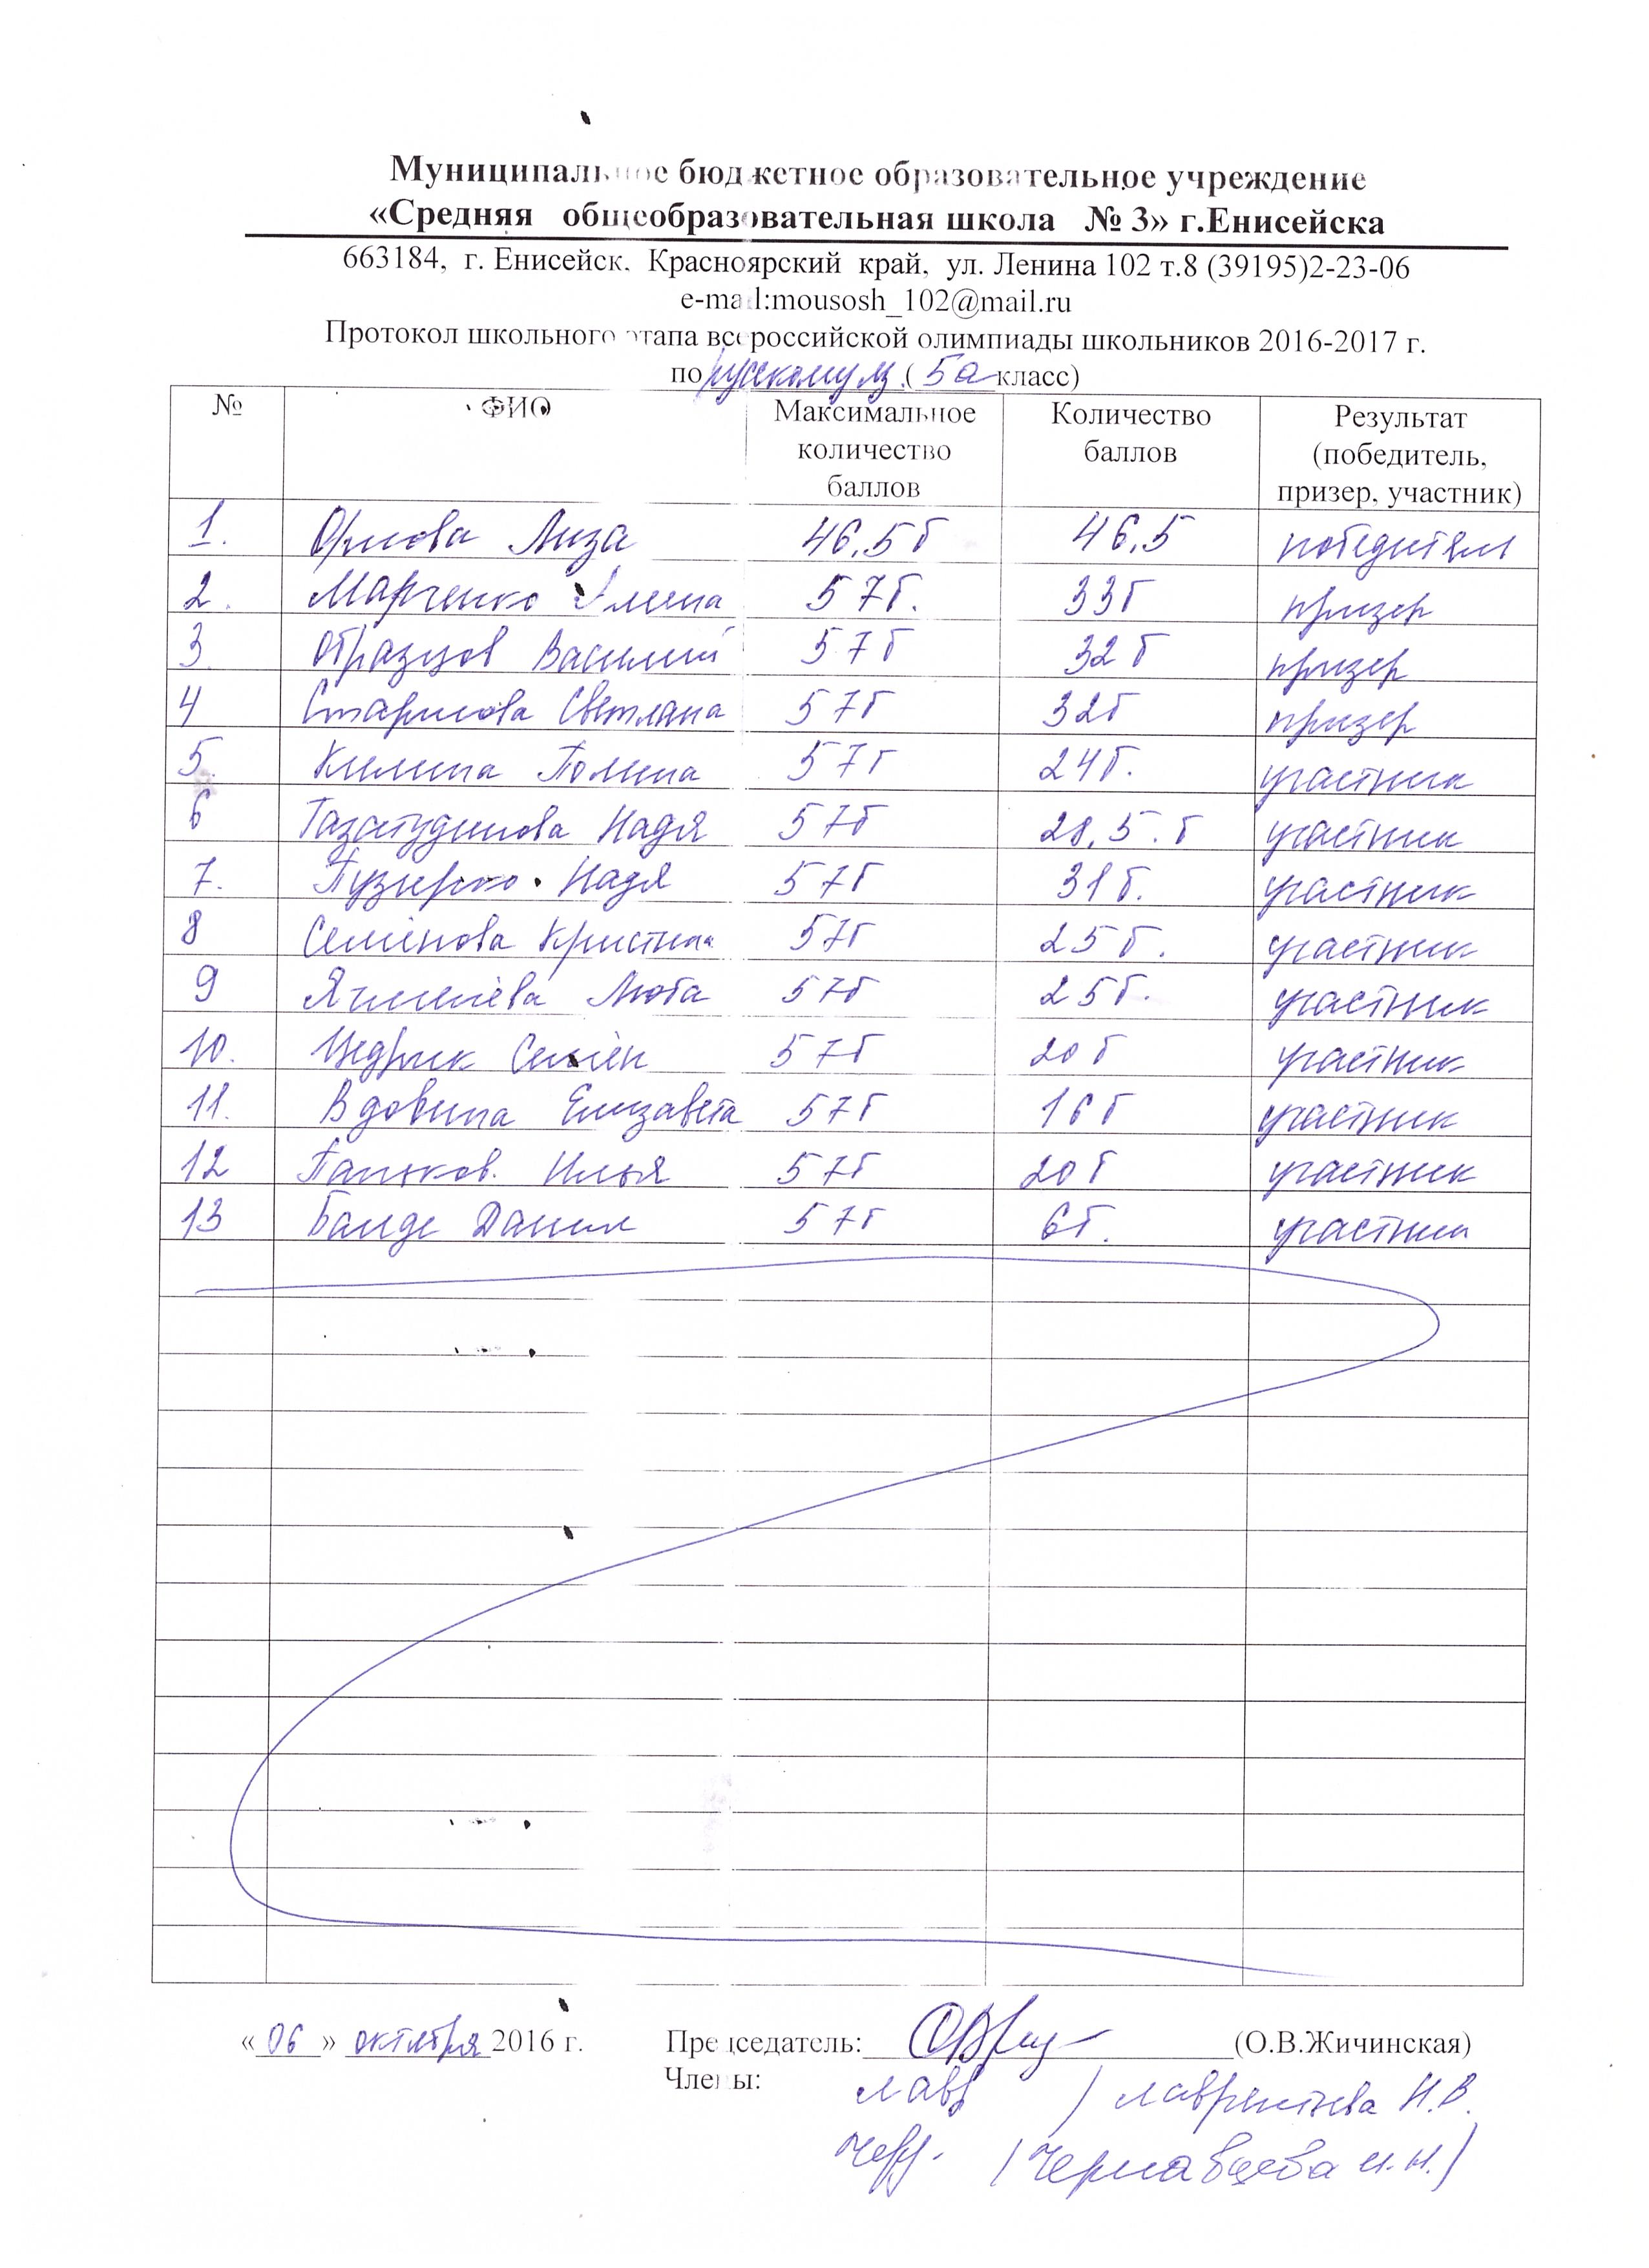 Муниципальное бюджетное образовательное учреждение
«Средняя общеобразовательная школа № 3» г.Енисейска
663184, г. Енисейск, Красноярский край, ул. Ленина 102 т.8 (39195)2-23-06
e-mail:mousosh_102@mail.ru
Протокол школьного этапа всероссийской олимпиады школьников 2016-2017 г.
по русскому яз. ( 5а класс)
№ ФИО Максимальное количество баллов Количество баллов Результат (победитель, призер, участник)
1. Орлова Лиза 46,5б 46,5 победитель
2. Марченко Алина 57б. 33б призер
3. Образцов Василий 57б 32б призер
4 Старикова Светлана 57б 32б призер
5. Килина Полина 57б 24б. участник
6 Надя 57б 28,5.б участник
7. Надя 57б 31б. участник
8 Семёнова Кристина 57б 25б. участник
9 Люба 57б 25б. участник
10. Цедрик Семён 57б 20б участник
11. Вдовина Елизавета 57б 16б участник
12 Паньков. Илья 57б 20б участник
13 Данил 57б 6б. участник
«06» октября 2016 г. Председатель: (О.В.Жичинская)
Члены: Лавр / Лаврентьева Н.В.
Черн. (Чернавцева И.Н.)